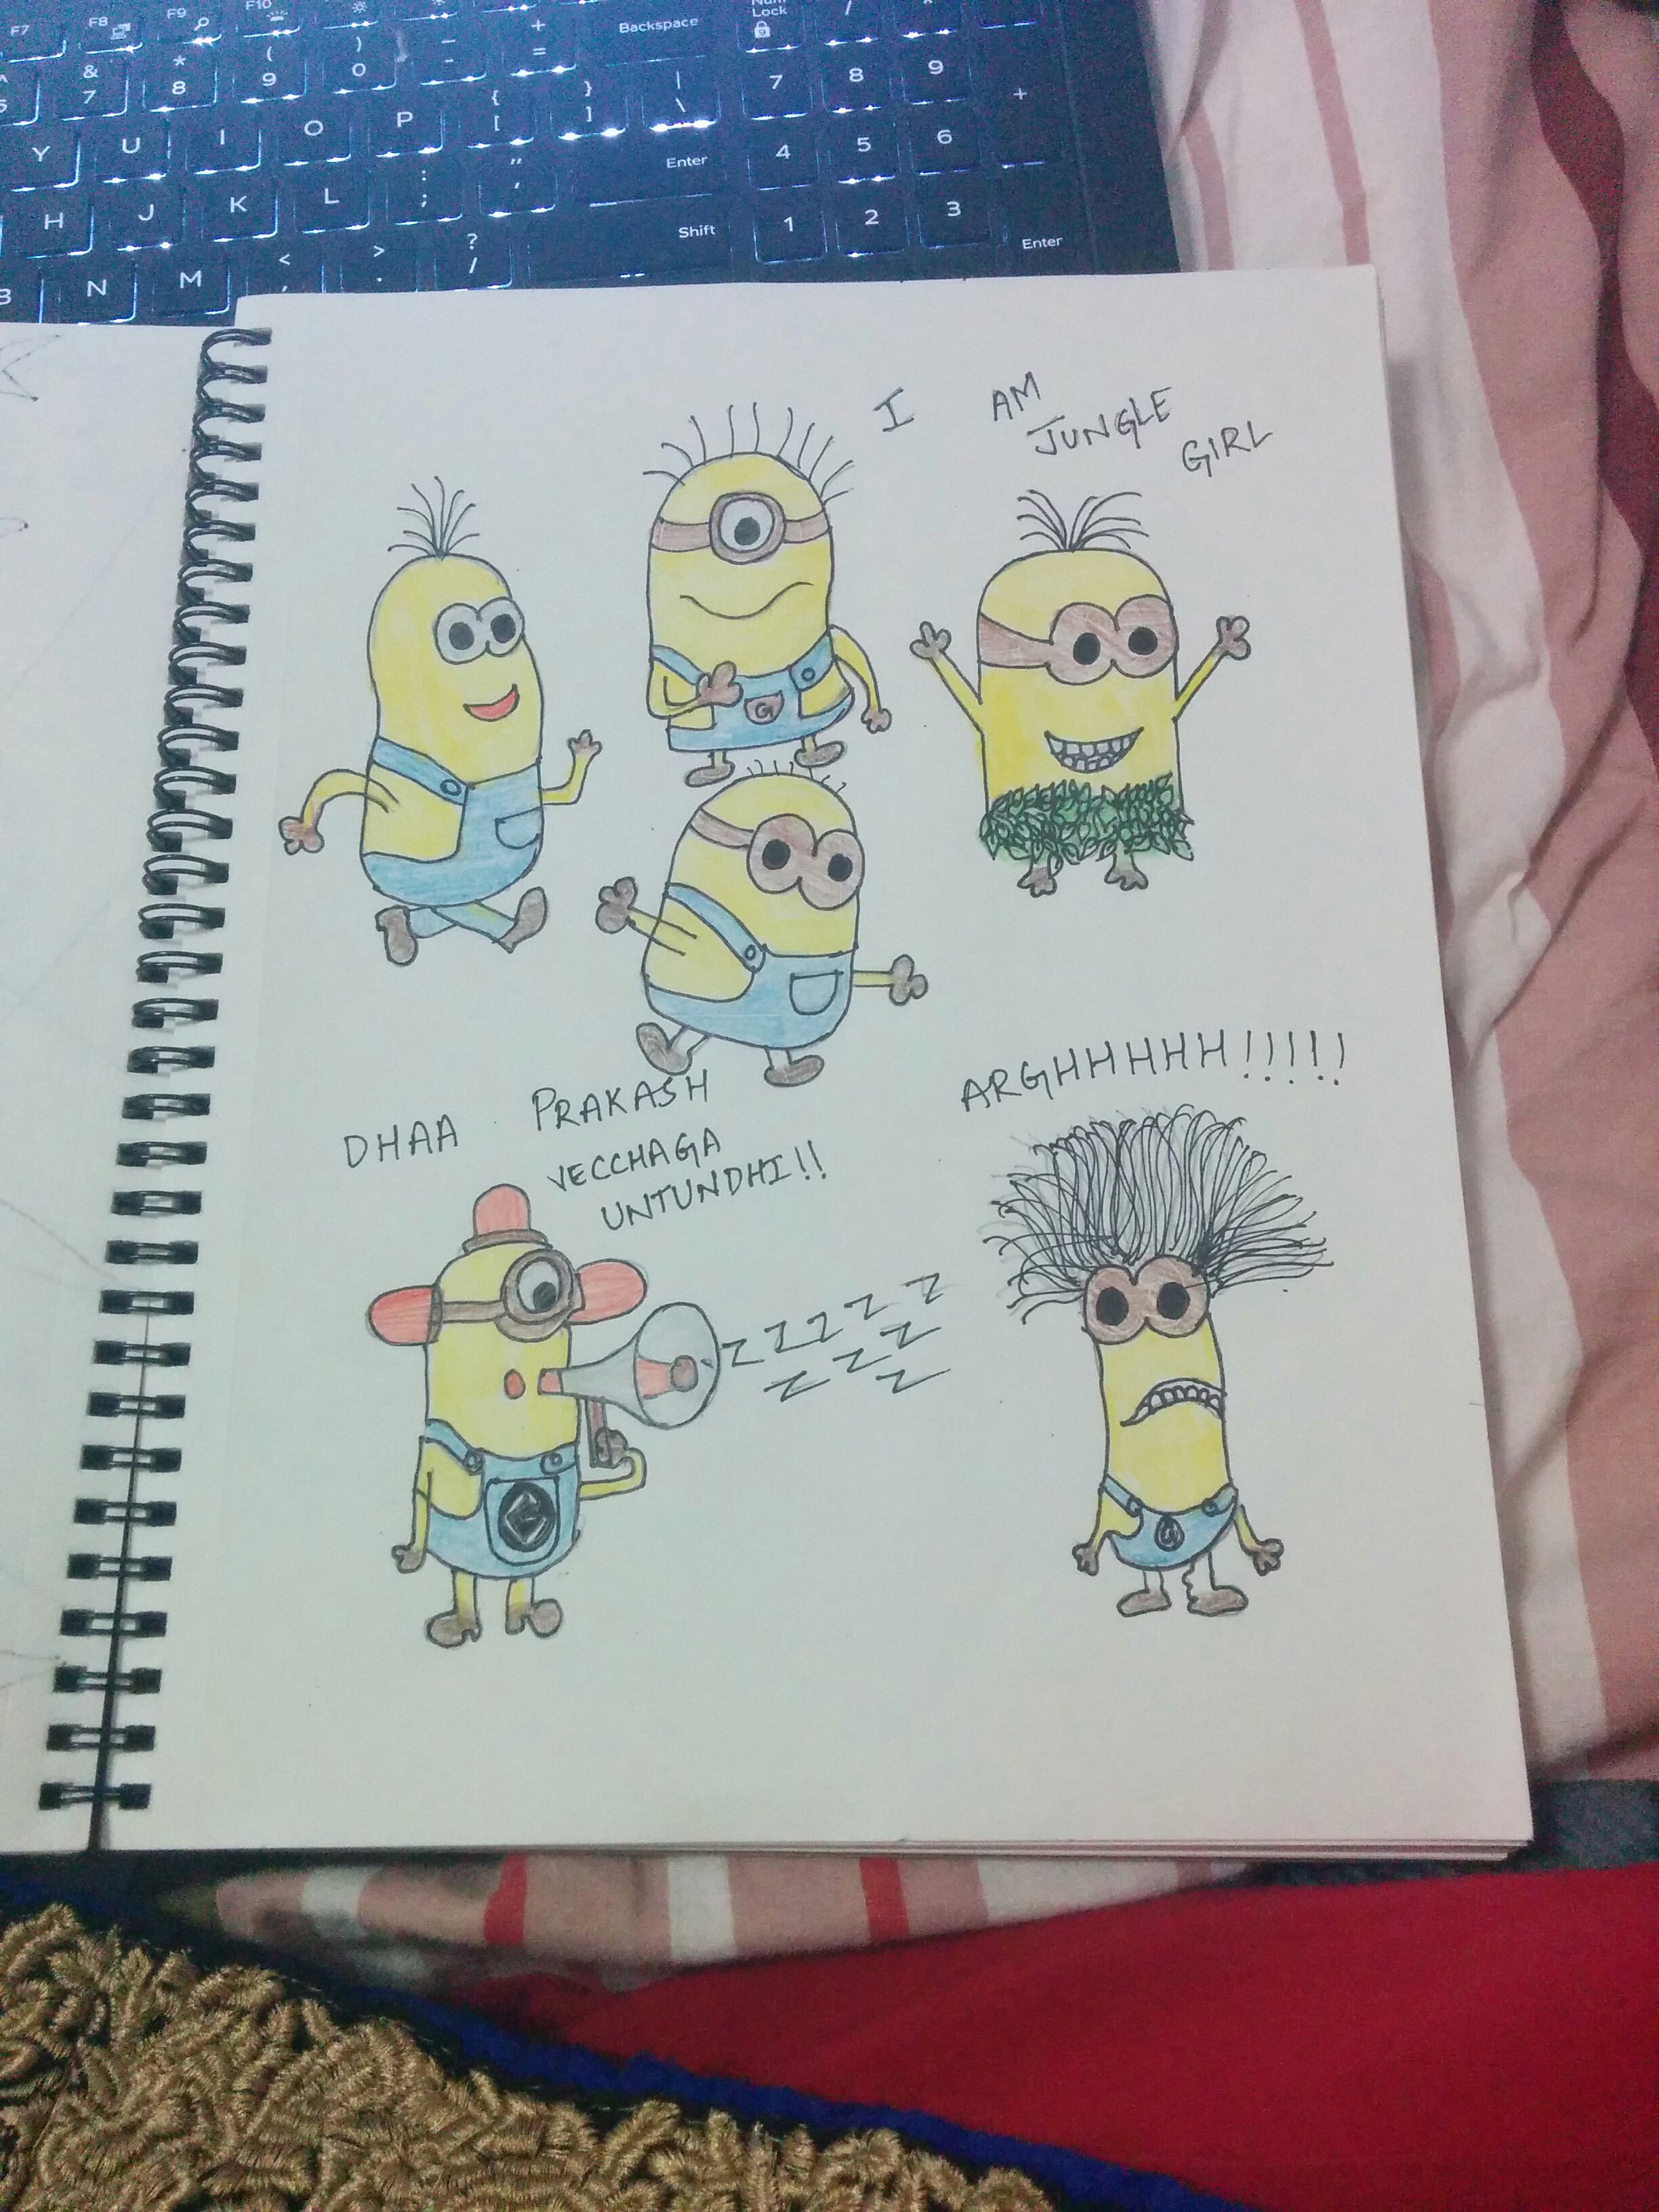 F7 F8 F9 F10 Num Lock /
& 7 * 8 ( 9 ) 0 _ - + = Backspace 7 8 9 +
Y U I O P { [ } ] | \ 4 5 6
H J K L : ; " ' Enter 1 2 3
B N M < , > . ? / Shift Enter
I AM
JUNGLE
GIRL
G
DHAA PRAKASH
VECCHAGA
UNTUNDHI!!
ARGHHHHH!!!!!
Z Z Z Z Z
Z Z Z
Z